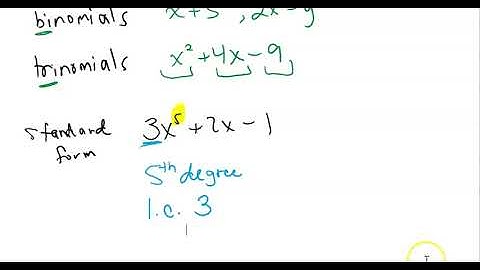 binomials x+5 , 2x-9
trinomials x²+4x-9
standard form 3x⁵+2x-1
5th degree
l.c. 3